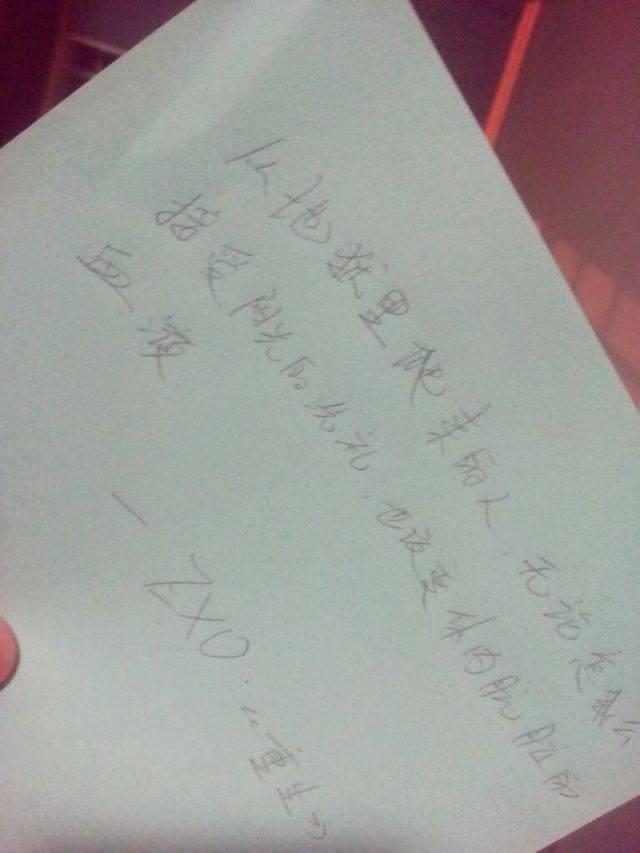 从地狱里爬来的人，无论怎么
接受阳光的洗礼，也改变体内肮脏的
血液
— ZXO.《重生》